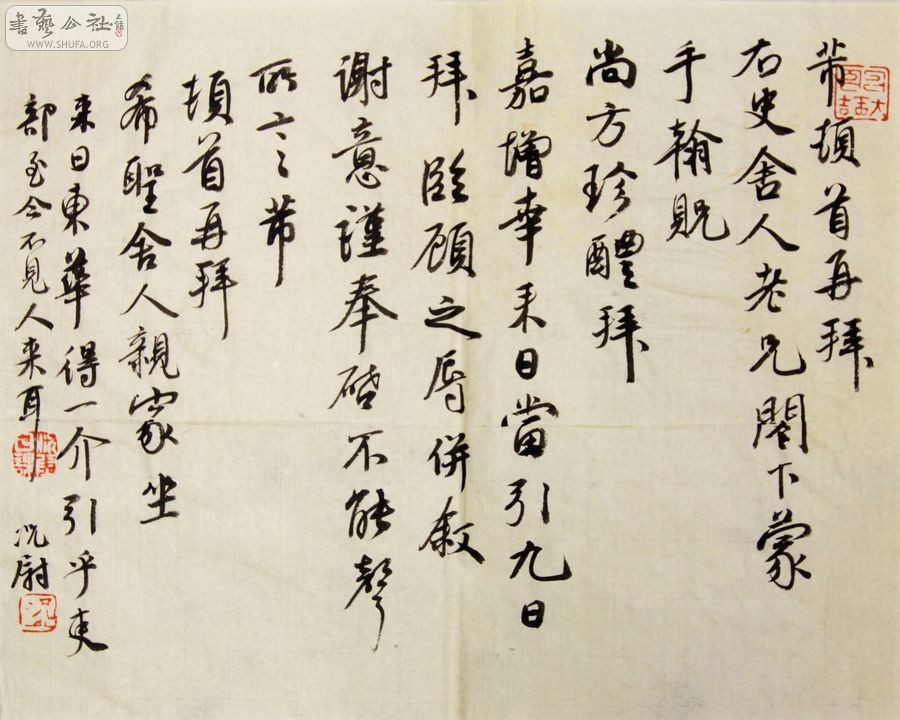 書藝公社
WWW.SHUFA.ORG
芾頓首再拜
右史舍人老兄閣下蒙
手翰貺
尚方珍醴拜
嘉增幸来日當引九日
拜臨顧之辱併敘
謝意謹奉啓不能聲
所言芾
頓首再拜
希聖舍人親家坐
来日東華得一介引乎吏
部至今不見人来耳
況尉